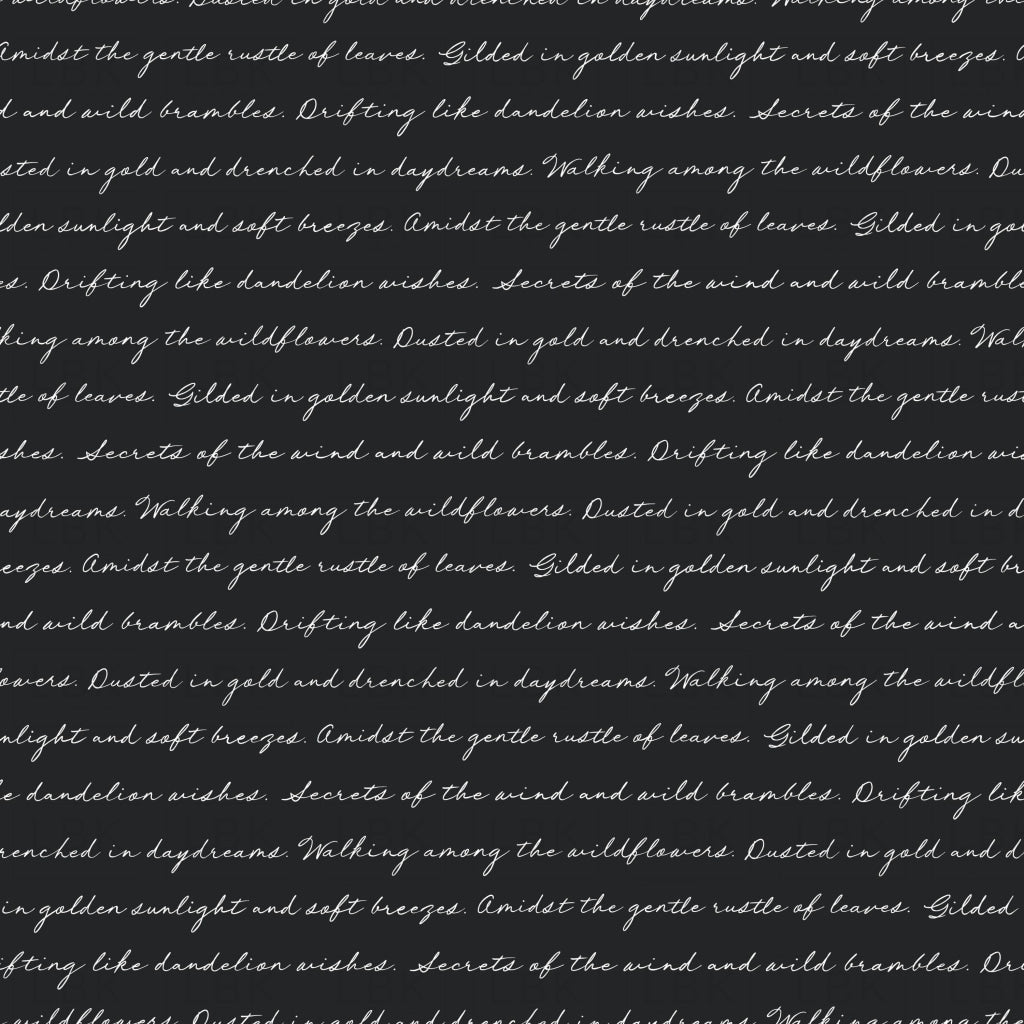 wildflowers. Dusted in gold and drenched in daydreams. Walking among
Amidst the gentle rustle of leaves. Gilded in golden sunlight and soft breezes. A
d and wild brambles. Drifting like dandelion wishes. Secrets of the wind
sted in gold and drenched in daydreams. Walking among the wildflowers. Du
lden sunlight and soft breezes. Amidst the gentle rustle of leaves. Gilded in go
es. Drifting like dandelion wishes. Secrets of the wind and wild bramble
king among the wildflowers. Dusted in gold and drenched in daydreams. Walk
tle of leaves. Gilded in golden sunlight and soft breezes. Amidst the gentle rust
shes. Secrets of the wind and wild brambles. Drifting like dandelion wis
aydreams. Walking among the wildflowers. Dusted in gold and drenched in d
eezes. Amidst the gentle rustle of leaves. Gilded in golden sunlight and soft br
nd wild brambles. Drifting like dandelion wishes. Secrets of the wind a
owers. Dusted in gold and drenched in daydreams. Walking among the wildfl
nlight and soft breezes. Amidst the gentle rustle of leaves. Gilded in golden su
e dandelion wishes. Secrets of the wind and wild brambles. Drifting lik
renched in daydreams. Walking among the wildflowers. Dusted in gold and d
in golden sunlight and soft breezes. Amidst the gentle rustle of leaves. Gilded
ifting like dandelion wishes. Secrets of the wind and wild brambles. Dri
wildflowers. Dusted in gold and drenched in daydreams. Walking among the